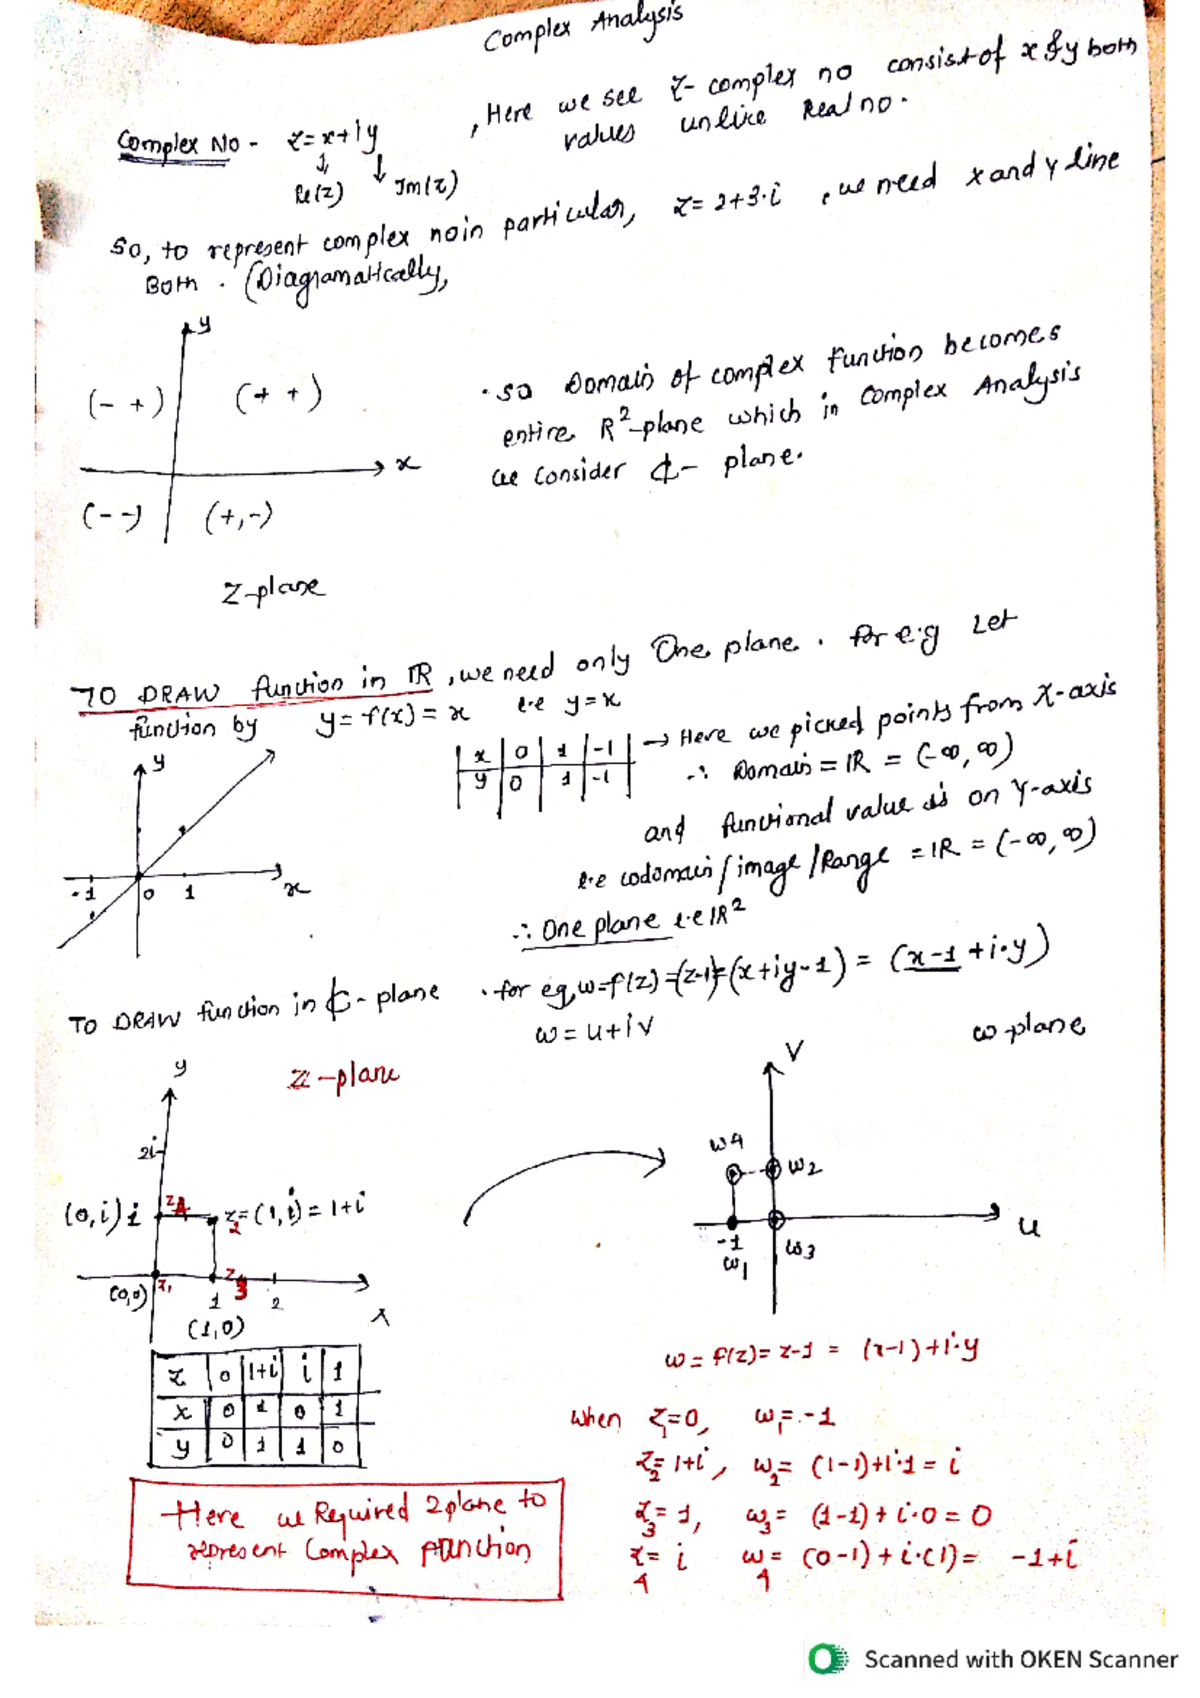 Complex Analysis
Complex No - z=x+iy , Here we see z- complex no consist of x & y both
values unlike Real no.
Re(z) Im(z)
So, to represent complex no in particular, z= 2+3·i , we need x and y line
Both . (Diagramatically,
y
(- +) (+ +)
x
(- -) (+,-)
Z-plane
·so Domain of complex function becomes
entire R²-plane which in Complex Analysis
we consider ₵- plane.
TO DRAW function in IR, we need only One plane. for e.g Let
function by y= f(x) = x i.e y=x
x 0 1 -1
y 0 1 -1
→ Here we picked points from X-axis
∴ Domain = IR = (-∞, ∞)
and functional value is on Y-axis
i.e codomain / image / Range = IR = (-∞, ∞)
∴ One plane i.e IR²
y
-1 0 1 x
TO DRAW function in ₵- plane . for eg, w=f(z) =(z-1)=(x+iy-1) = (x-1 +i·y)
w = u+iv
y Z-plane
2i
(0,i) i z4 z2=(1,i) = 1+i
(0,0) z1 1 z3 2 x
(1,0)
w-plane
V
w4 w2
-1 w3 u
w1
z 0 1+i i 1
x 0 1 0 1
y 0 1 1 0
Here we Required 2 plane to
represent Complex function
w = f(z)= z-1 = (x-1)+i·y
when z1=0, w1=-1
z2= 1+i, w2= (1-1)+i·1 = i
z3= 1, w3= (1-1) + i·0 = 0
z4= i w4= (0-1) + i·(1)= -1+i
Scanned with OKEN Scanner